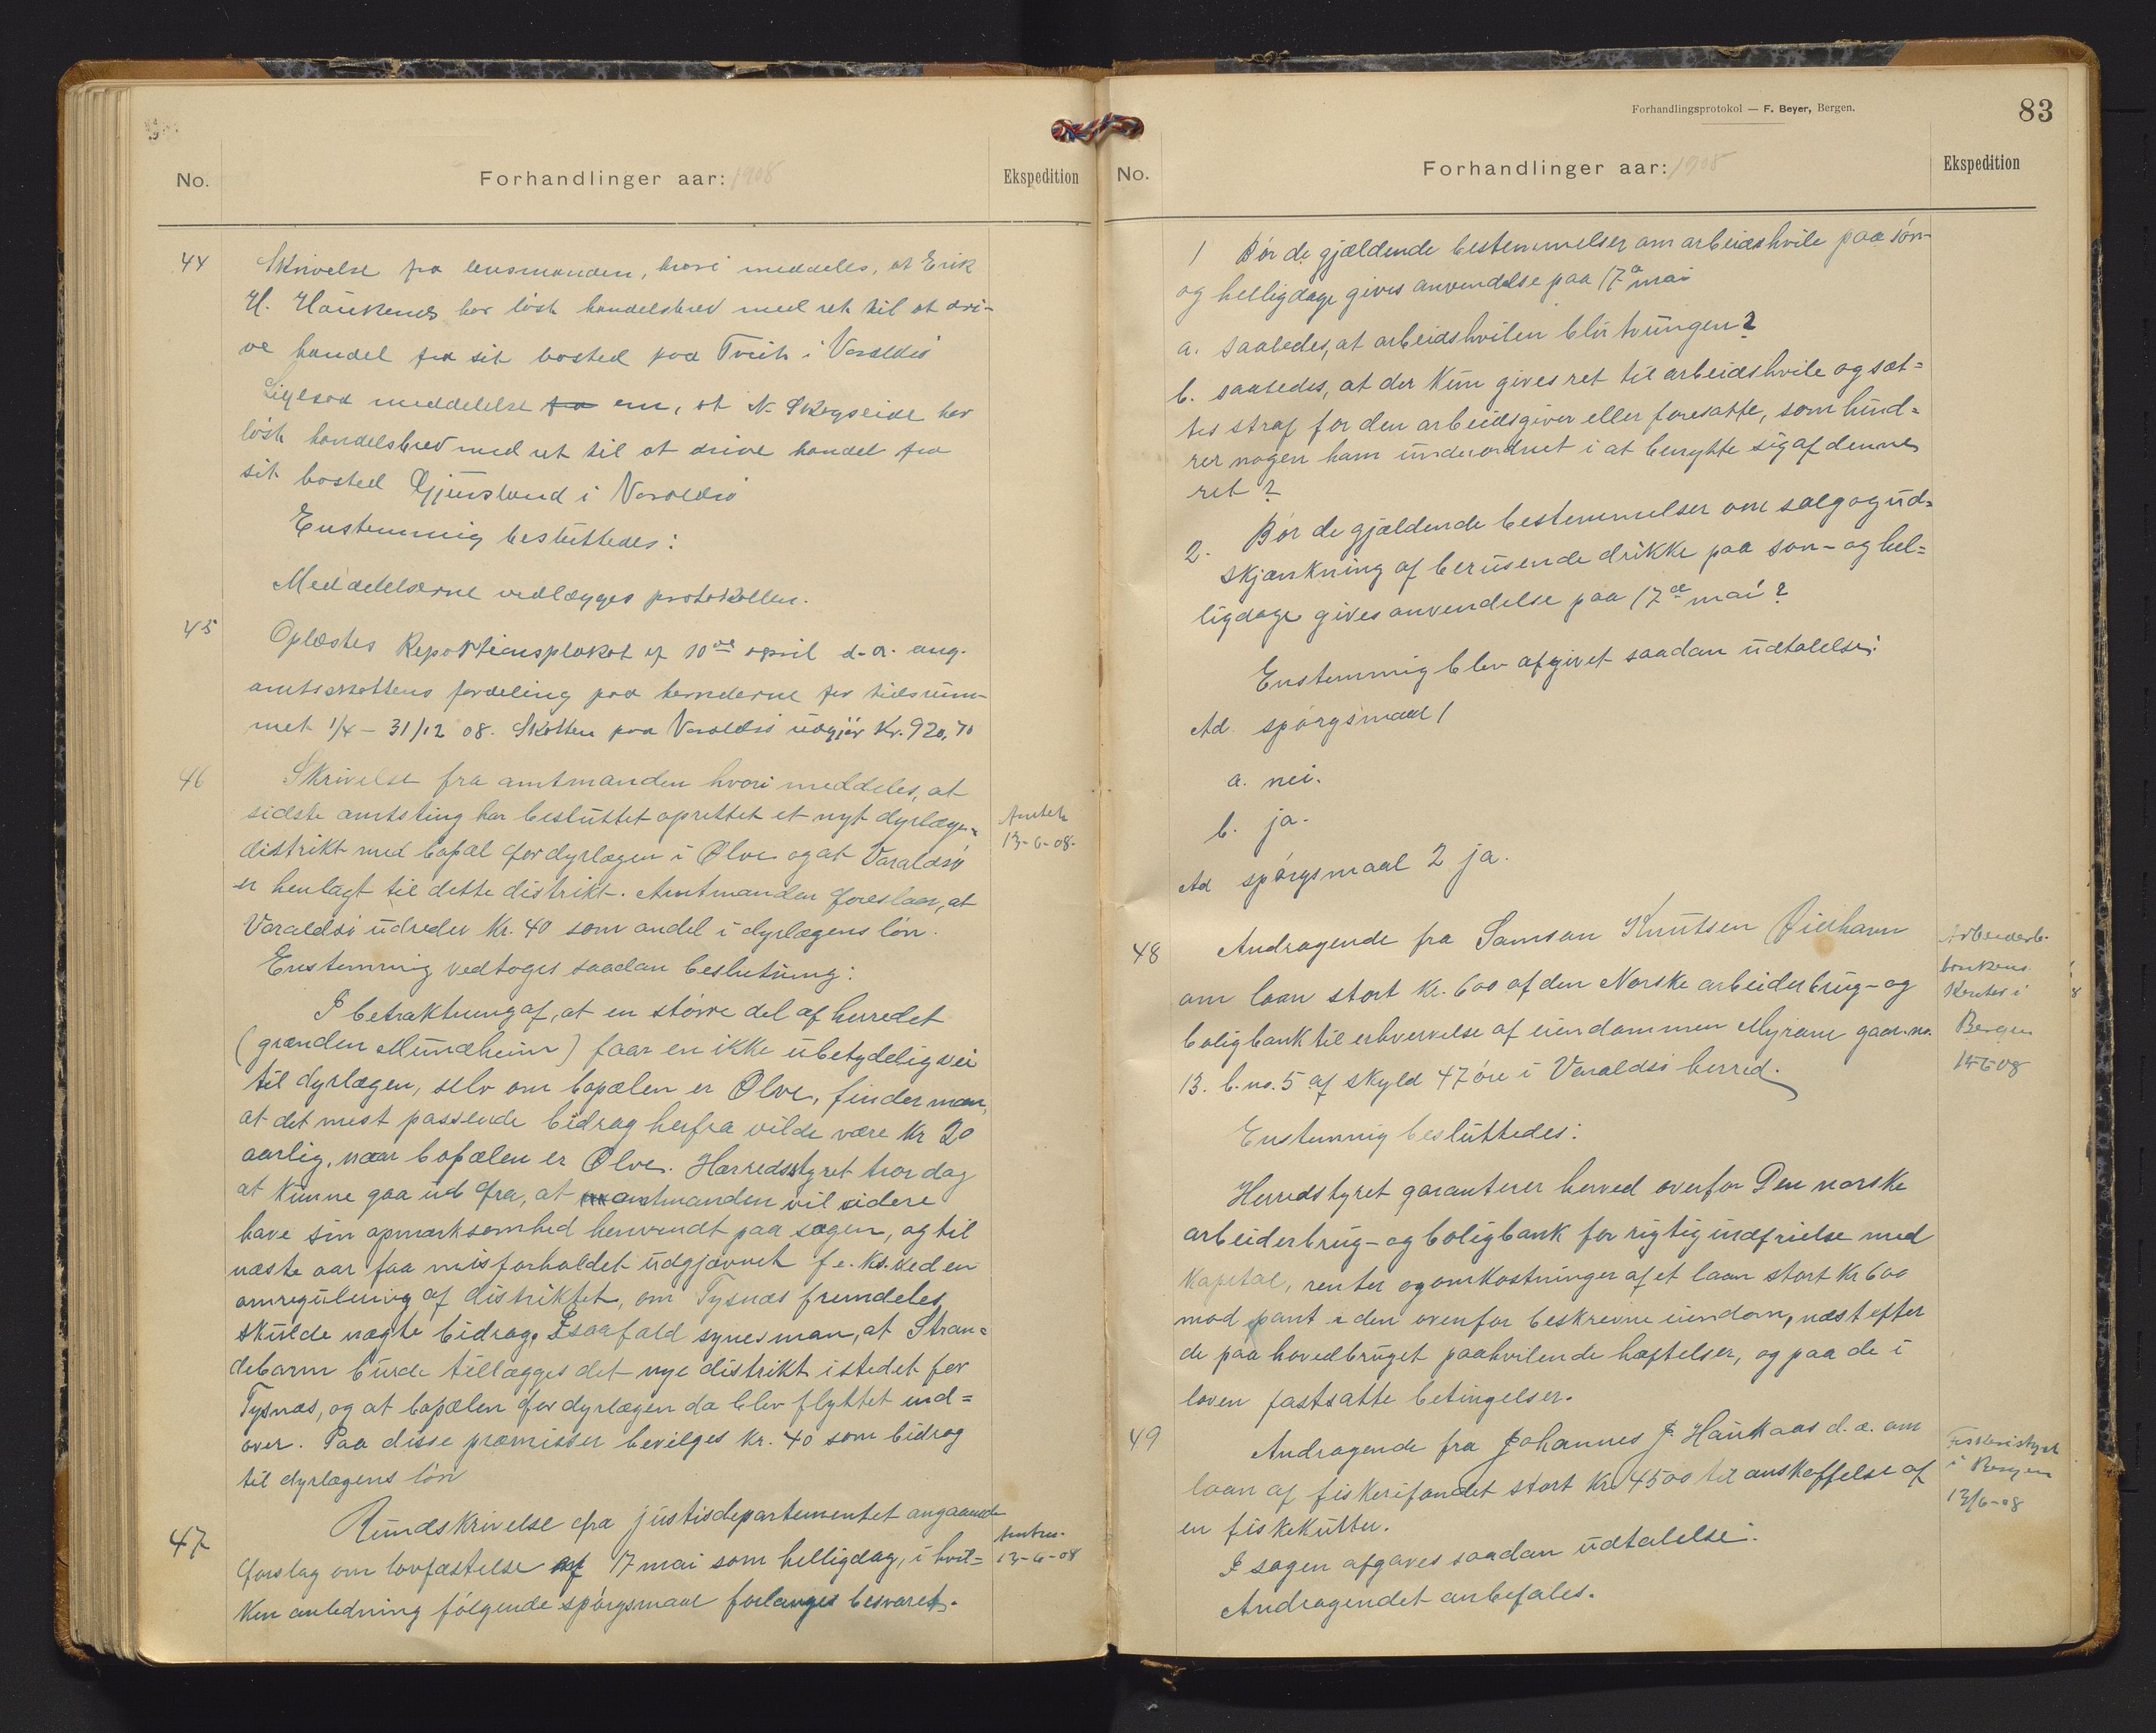 No.
Forhandlinger aar: 1908
Ekspedition
44
Skrivelse fra lensmanden, hvori meddeles, at Erik
H. Haukenes har löst handelsbrev med ret til at dri-
ve handel fra sit bosted paa Tveit i Varaldsö
Ligesaa meddelelse fra om, at N. Skogseide har
löst handelsbrev med ret til at drive handel fra
sit bosted Gjuvsland i Varaldsö
Enstemmig besluttedes:
Meddelelserne vedlægges protokollen.
45
Oplæstes Repartionsplakat af 10de april d. a. ang.
amtsskattens fordeling paa herrederne for tidsrum-
met 1/4 - 31/12 08. Skatten paa Varaldsö udgjör Kr. 920,70
46
Skrivelse fra amtmanden hvori meddeles, at
sidste amtsting har besluttet oprettet et nyt dyrlæge-
distrikt med bopæl for dyrlægen i Ølve og at Varaldsö
er henlagt til dette distrikt. Amtmanden foreslaar, at
Varaldsö udreder Kr. 40 som andel i dyrlægens lön.
Amtet
13-6-08.
Enstemmig vedtoges saadan beslutning:
I betraktning af, at en större del af herredet
(grænden Mundheim) faar en ikke ubetydelig vei
til dyrlægen, selv om bopælen er Ølve, finder man,
at det mest passende bidrag herfra vilde være Kr 20
aarlig, naar bopælen er Ølve. Herredsstyret tror dog
at kunne gaa ud fra, at amtmanden vil videre
have sin opmærksomhed henvendt paa sagen, og til
næste aar faa misforholdet udgjævnet f. eks. ved en
omregulering af distriktet, om Tysnæs fremdeles
skulde nægte bidrag. Isaafald synes man, at Stran-
debarm burde tillægges det nye distrikt istedet for
Tysnæs, og at bopælen for dyrlægen da blev flyttet ind-
over. Paa disse præmisser bevilges kr. 40 som bidrag
til dyrlægens lön
47
Rundskrivelse fra justisdepartementet angaaende
forslag om lovfæstelse af 17 mai som helligdag, i hvil-
ken anledning fölgende spörgsmaal forlanges besvaret.
13-6-08
Forhandlingsprotokol — F. Beyer, Bergen.
83
No.
Forhandlinger aar: 1908
Ekspedition
1 Bör de gjældende bestemmelser om arbeidshvile paa sön-
og helligdage gives anvendelse paa 17de mai
a. saaledes, at arbeidshvilen blir tvungen?
b. saaledes, at der kun gives ret til arbeidshvile og sæt-
tes straf for den arbeidsgiver eller foresatte, som hind-
rer nogen ham underordnet i at benytte sig af denne
ret?
2. Bör de gjældende bestemmelser om salg og ud-
skjænkning af berusende drikke paa sön- og hel-
ligdage gives anvendelse paa 17de mai?
Enstemmig blev afgivet saadan udtalelse:
Ad spörgsmaal 1
a. nei.
b. ja.
Ad spörgsmaal 2 ja.
48
Andragende fra Samson Knutsen
om laan stort kr. 600 af den Norske arbeiderbrug- og
boligbank til erhvervelse af eiendommen Myrane gaar. no.
13. b. no. 5 af skyld 47 öre i Varaldsö herred.
Arbeiderb.
bankens
Kontor i
Bergen
15-6-08
Enstemmig besluttedes:
Herredstyret garanterer herved overfor Den norske
arbeiderbrug- og boligbank for rigtig indfrielse med
kapital, renter og omkostninger af et laan stort Kr 600
mod pant i den ovenfor beskrevne eiendom, næst efter
de paa hovedbruget paahvilende hæftelser, og paa de i
loven fastsatte betingelser.
49
Andragende fra Johannes J. Haukaas d. æ. om
laan af fiskerifondet stort Kr. 4500 til anskaffelse af
en fiskekutter.
i Bergen
13/6-08
I sagen afgaves saadan udtalelse:
Andragendet anbefales.